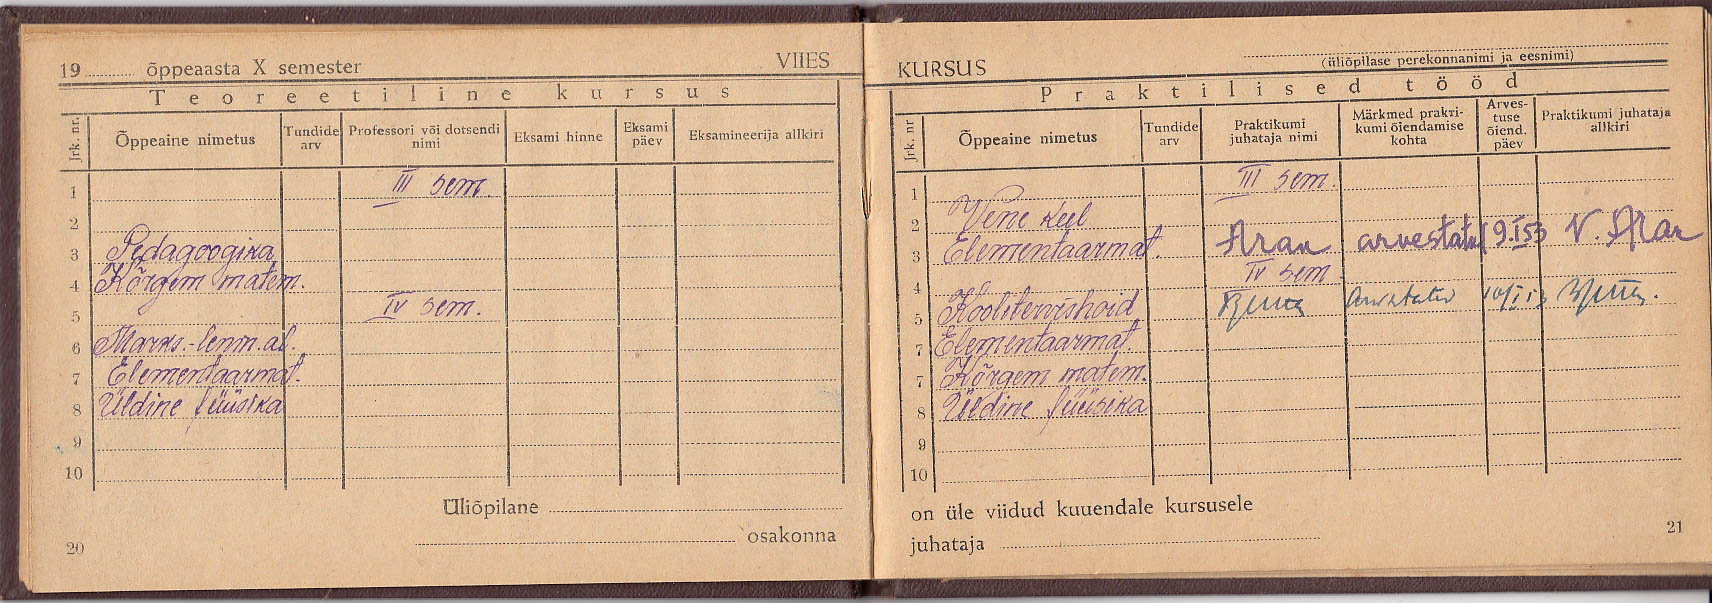 19 ........ õppeaasta X semester VIIES
Teoreetiline kursus
Jrk. nr. Õppeaine nimetus Tundide arv Professori või dotsendi nimi Eksami hinne Eksami päev Eksamineerija allkiri
1 III sem.
2
3 Pedagoogika
4 Kõrgem matem.
5 IV sem.
6 Marks.-lenin.al.
7 Elementaarmat.
8 Üldine füüsika
9
10
Üliõpilane
osakonna
20
KURSUS
(üliõpilase perekonnanimi ja eesnimi)
Praktilised tööd
Jrk. nr Õppeaine nimetus Tundide arv Praktikumi juhataja nimi Märkmed prakri-kumi õiendamise kohta Arves-tuse õiend. päev Praktikumi juhataja allkiri
1 III sem.
2 Vene keel
3 Elementaarmat. arvestatud 9.I 53
4 IV sem
5 Koolitervishoid
7 Elementaarmat.
7 Kõrgem matem.
8 Üldine füüsika
9
10
on üle viidud kuuendale kursusele
juhataja
21